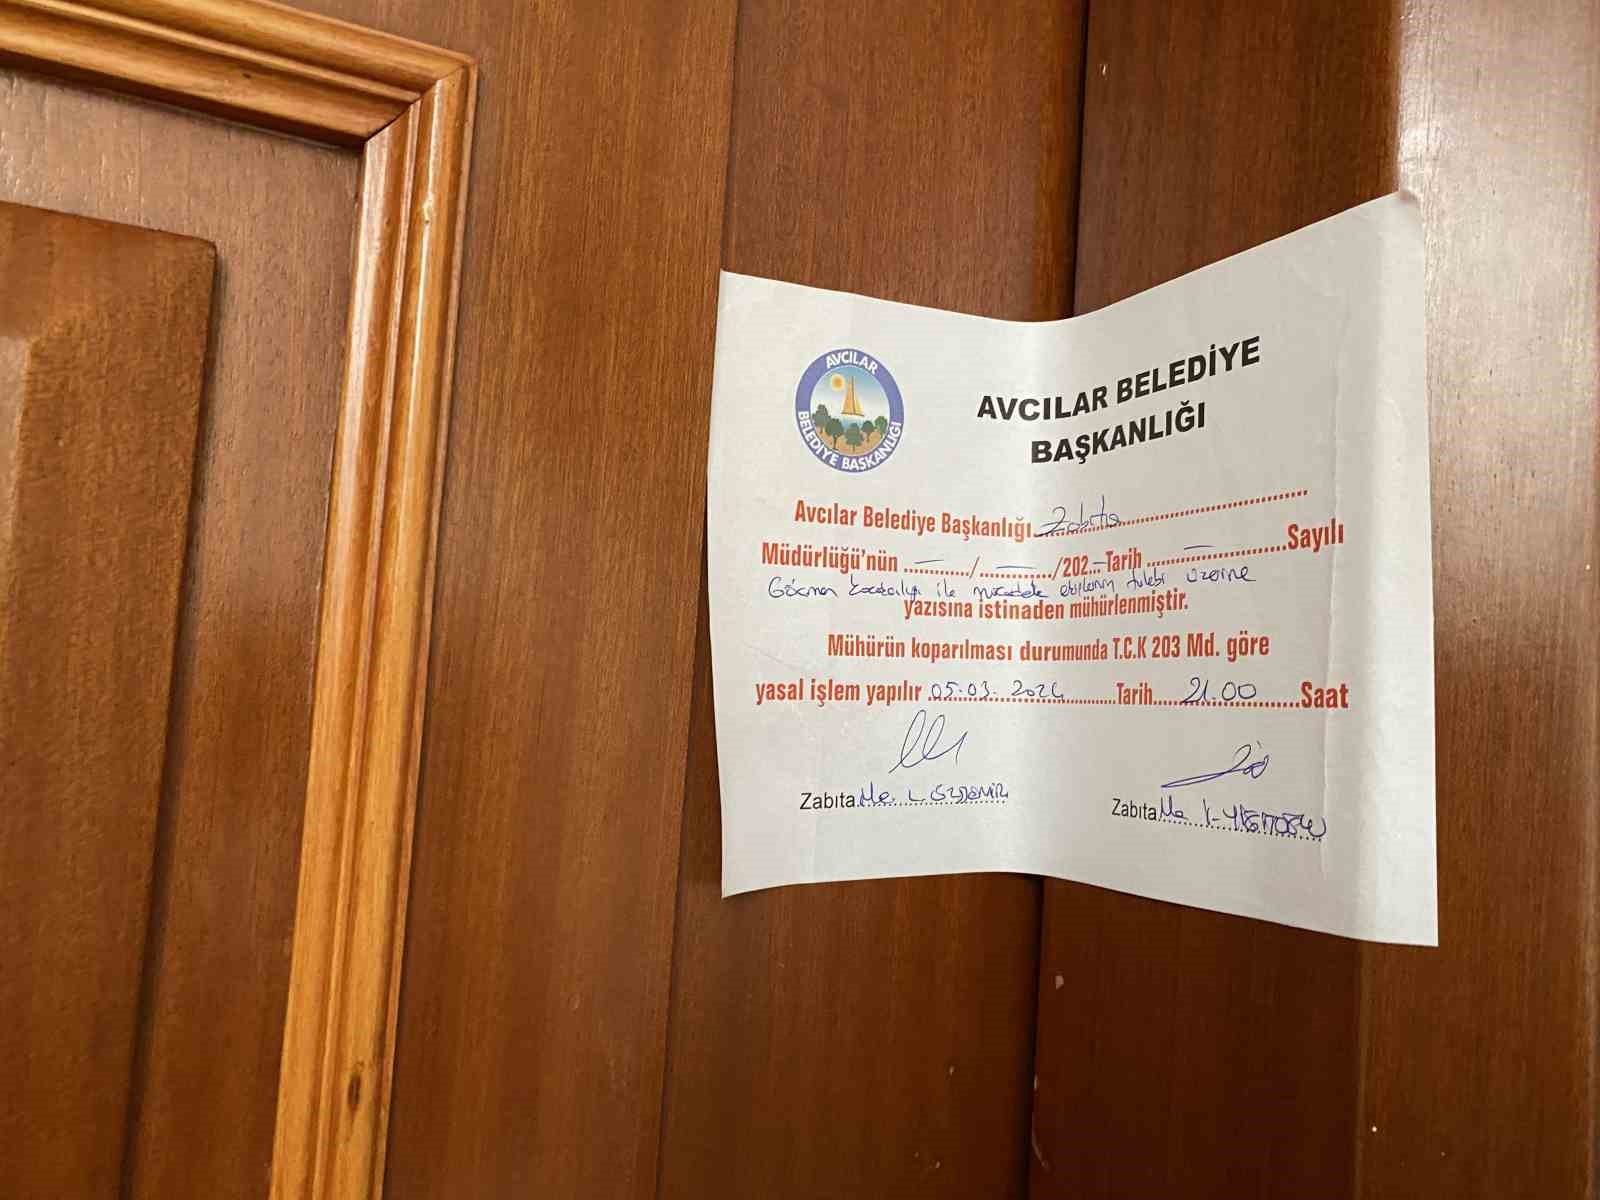 AVCILAR
BELEDİYE BAŞKANLIĞI
AVCILAR BELEDİYE
BAŞKANLIĞI
Avcılar Belediye Başkanlığı Zabıta
Müdürlüğü'nün ........../........../202...Tarih ..........Sayılı
Göçmen Kaçakçılığı ile mücadele ekiplerinin talebi üzerine
yazısına istinaden mühürlenmiştir.
Mühürün koparılması durumunda T.C.K 203 Md. göre
yasal işlem yapılır 05.03.2024 Tarih 21.00 Saat
Zabıta Me. L. ÖZDEMİR
Zabıta Me